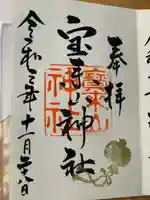 奉拝
宝来山神社
令和三年十一月二十八日